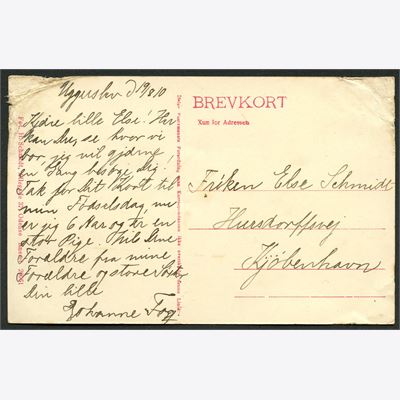 Uggerslev d 19/8 10
Kjære lille Else! Her
kan Du se hvor vi
bor, jeg vil gjærne
en Gang besøge Dig.
Tak for Dit Kort til
min Fødselsdag, nu
er jeg 6 Aar og er en
stor Pige. Hils Dine
Forældre fra mine
Forældre og store Søster
Din lille
Johanne Fog
BREVKORT
Kun for Adressen
Frøken Else Schmidt
Hursdorffsvej
Kjøbenhavn